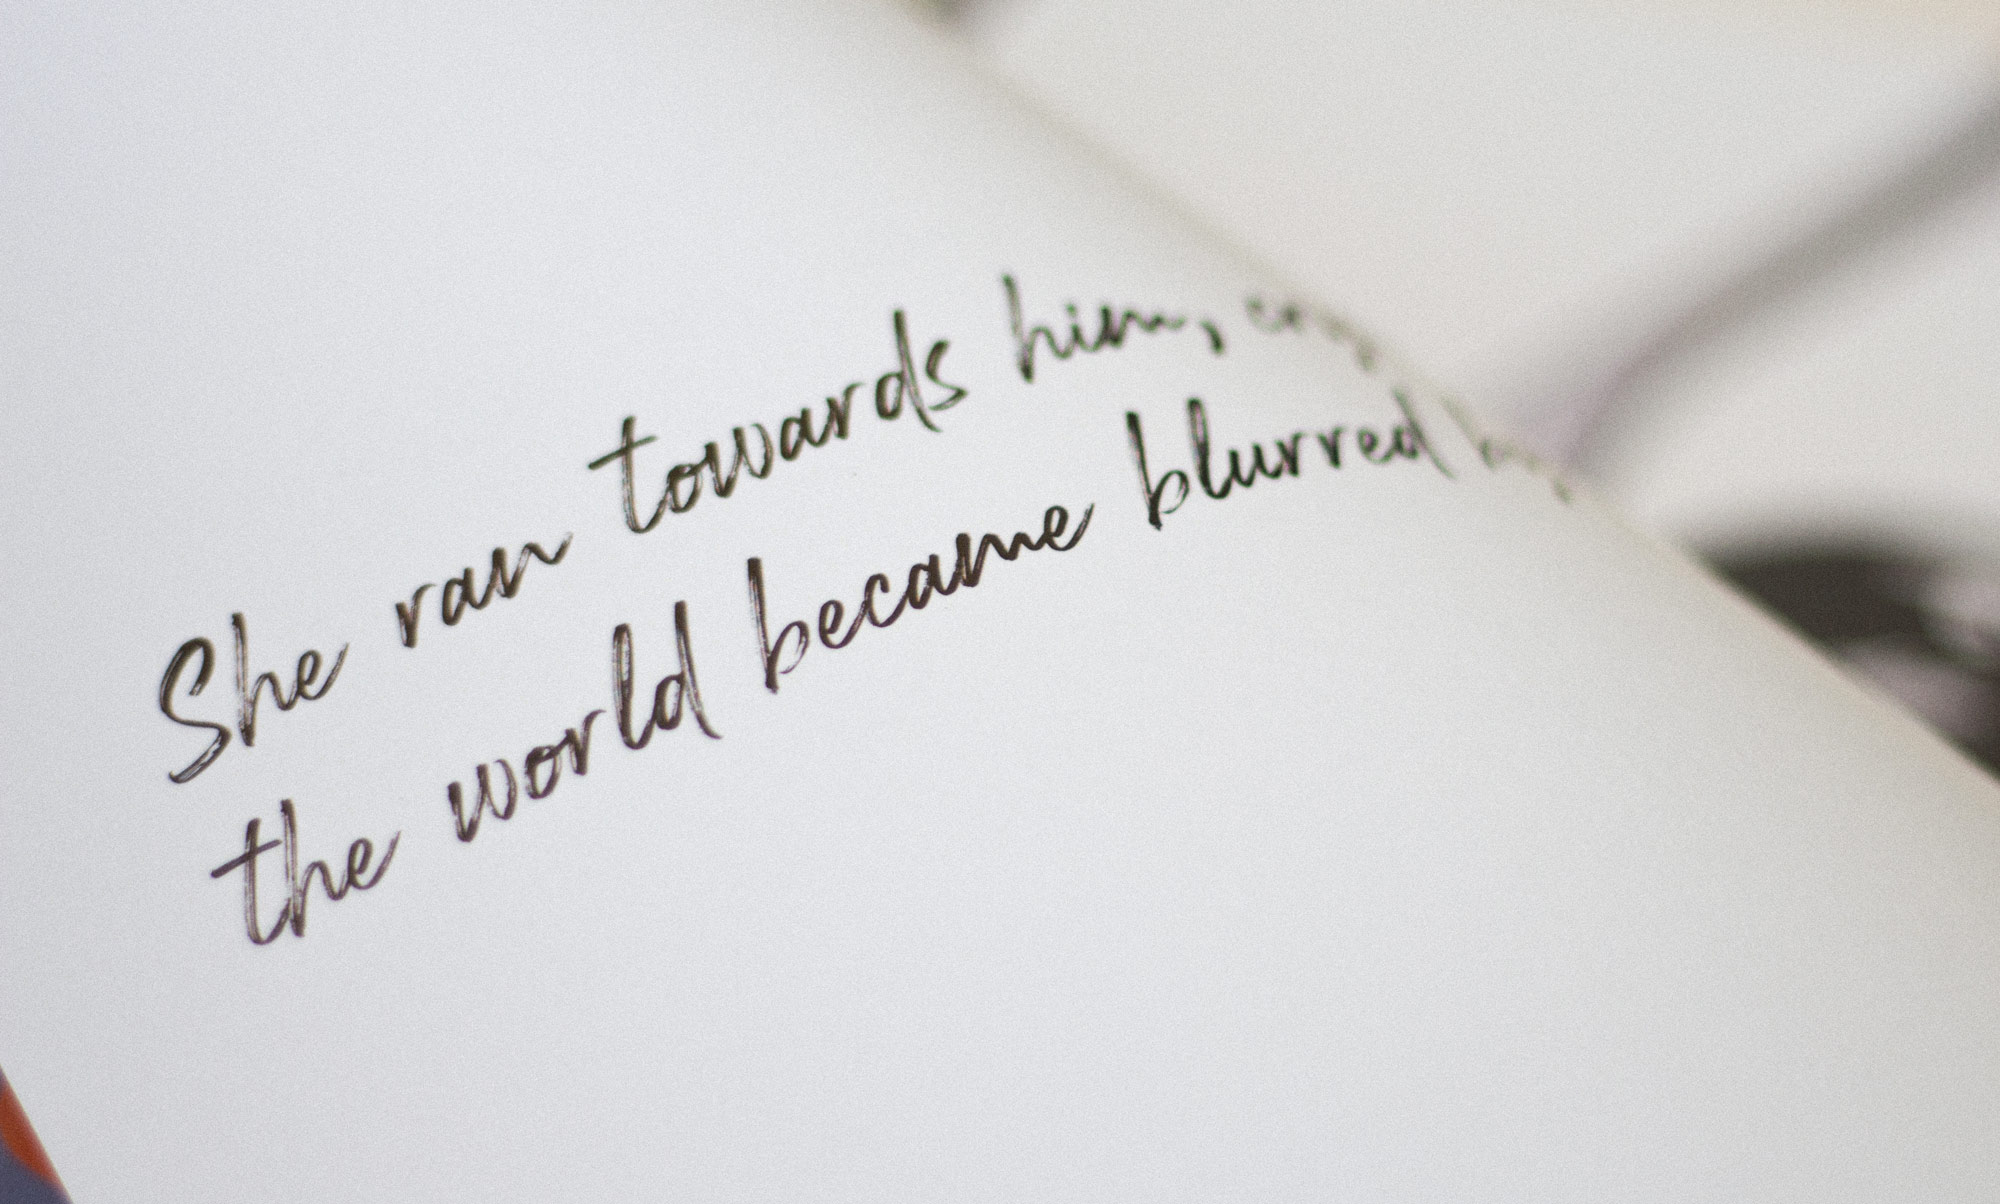 She ran towards him,
the world became blurred